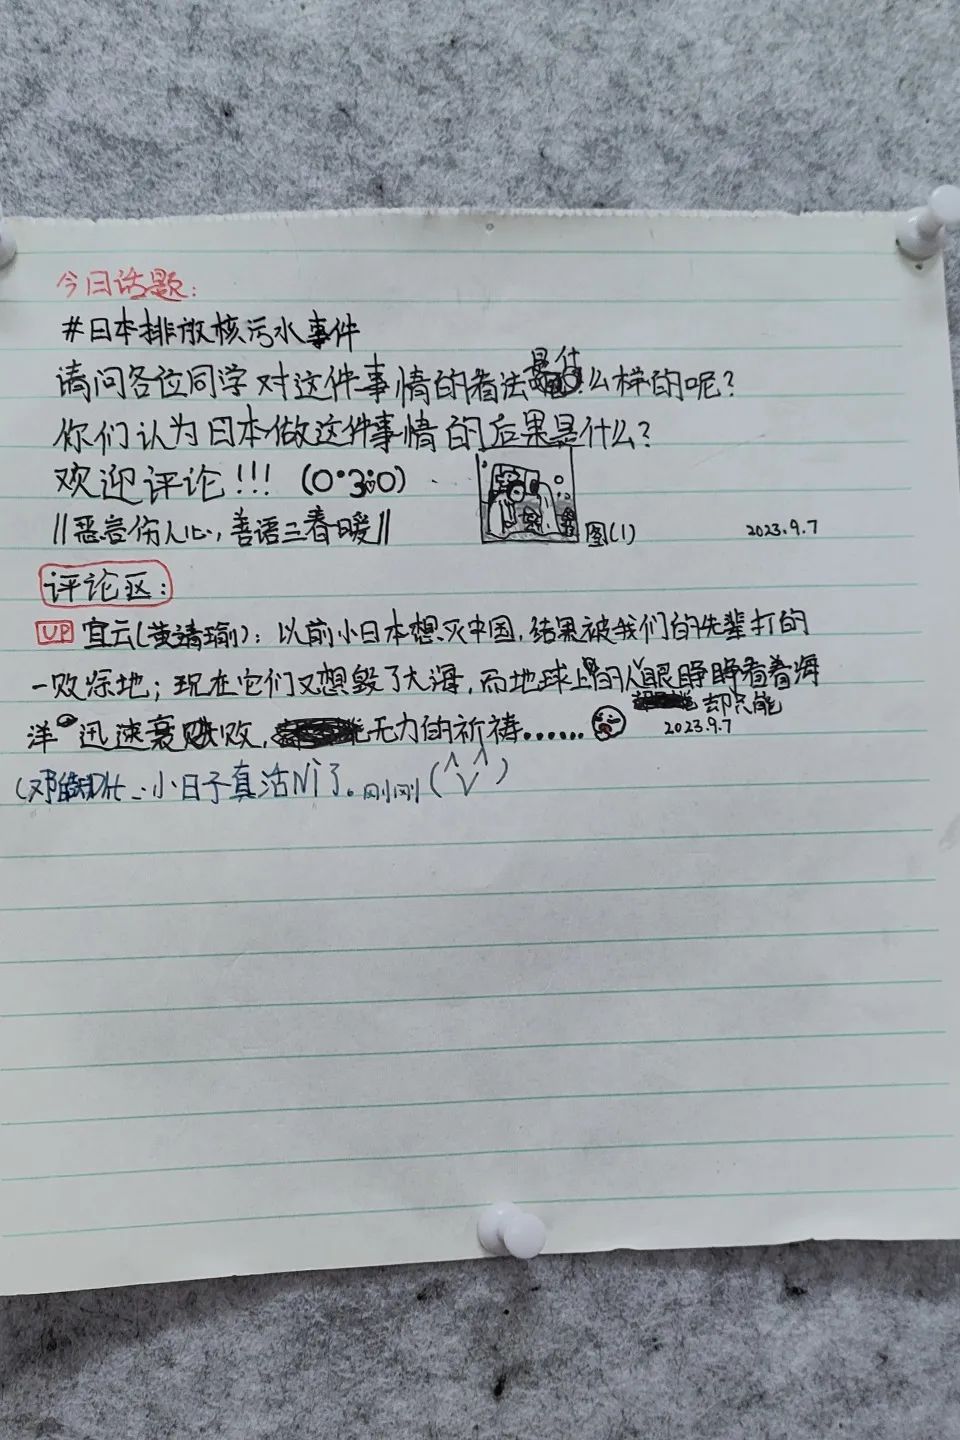 今日话题:
#日本排放核污水事件
请问各位同学对这件事情的看法是什么样的呢?
你们认为日本做这件事情的后果是什么?
欢迎评论!!! (0·3;0)
||恶言伤人心,善语三春暖|| 图(1) 2023.9.7
评论区:
UP 宜云(黄靖瑜):以前小日本想灭中国,结果被我们的先辈打的
一败涂地;现在它们又想毁了大海,而地球上的人眼睁睁看着海
洋迅速衰败,却只能无力的祈祷…… 2023.9.7
小日子真活Ni了。刚刚(^V^)